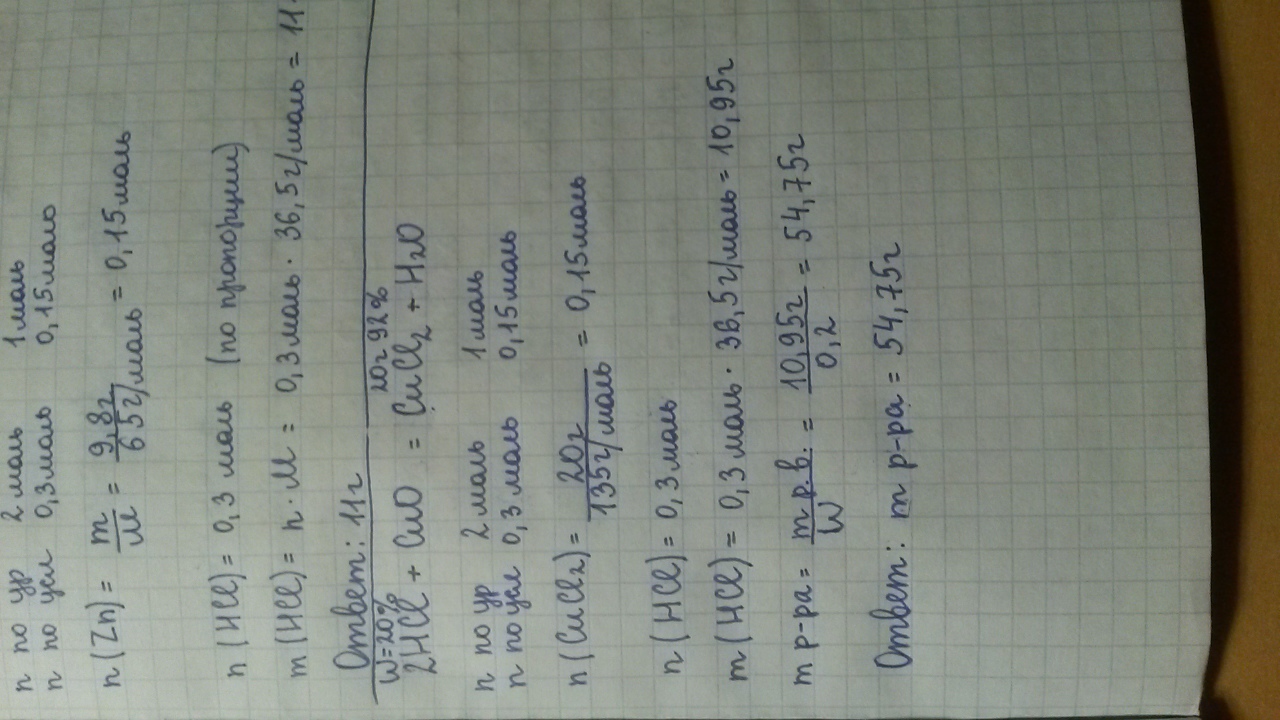 n по ур 2 моль 1 моль
n по усл 0,3 моль 0,15 моль
n (Zn) = m/M = 9,8г/65г/моль = 0,15 моль
n (HCl) = 0,3 моль (по пропорции)
m (HCl) = n · M = 0,3 моль · 36,5г/моль = 11
Ответ: 11г
W=20% 20г 92%
2HCl + CuO = CuCl2 + H2O
n по ур 2 моль 1 моль
n по усл 0,3 моль 0,15 моль
n (CuCl2) = 20г/135г/моль = 0,15 моль
n (HCl) = 0,3 моль
m (HCl) = 0,3 моль · 36,5г/моль = 10,95г
m р-ра = m р.в./W = 10,95г/0,2 = 54,75г
Ответ: m р-ра = 54,75г